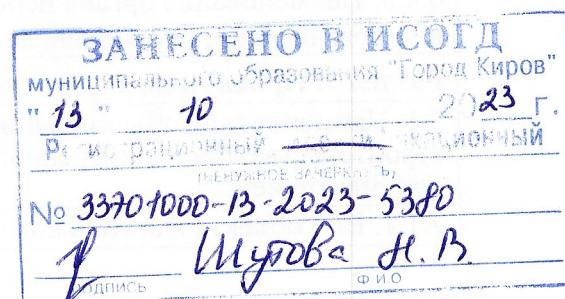 ЗАНЕСЕНО В ИСОГД
муниципального образования "Город Киров"
"13" 10 2023 г.
Регистрационный
(НЕНУЖНОЕ ЗАЧЕРКНУТЬ)
№ 33701000-13-2023-5380
Шутова Н. В.
подпись Ф И О